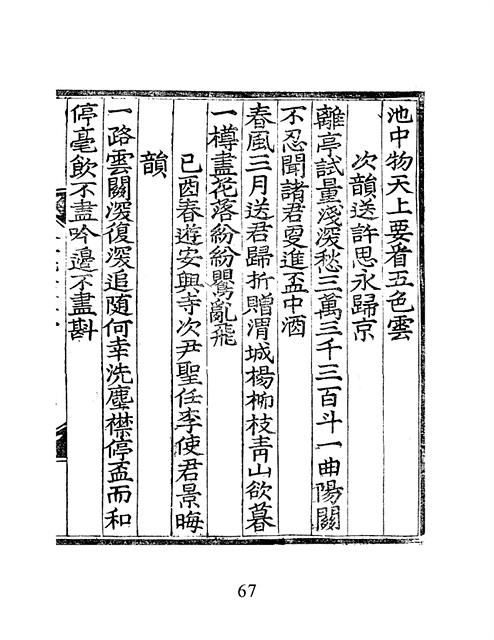 池中物天上要看五色雲
次韻送許思永歸京
離亭試量淺深愁三萬三千三百斗一曲陽關
不忍聞諸君更進盃中酒
春風三月送君歸折贈渭城楊柳枝靑山欲暮
一樽盡花落紛紛鸎亂飛
己酉春遊安興寺次尹聖任李使君景晦
韻
一路雲關深復深追随何幸洗塵襟停盃而和
停毫飮不盡吟邊不盡斟
67